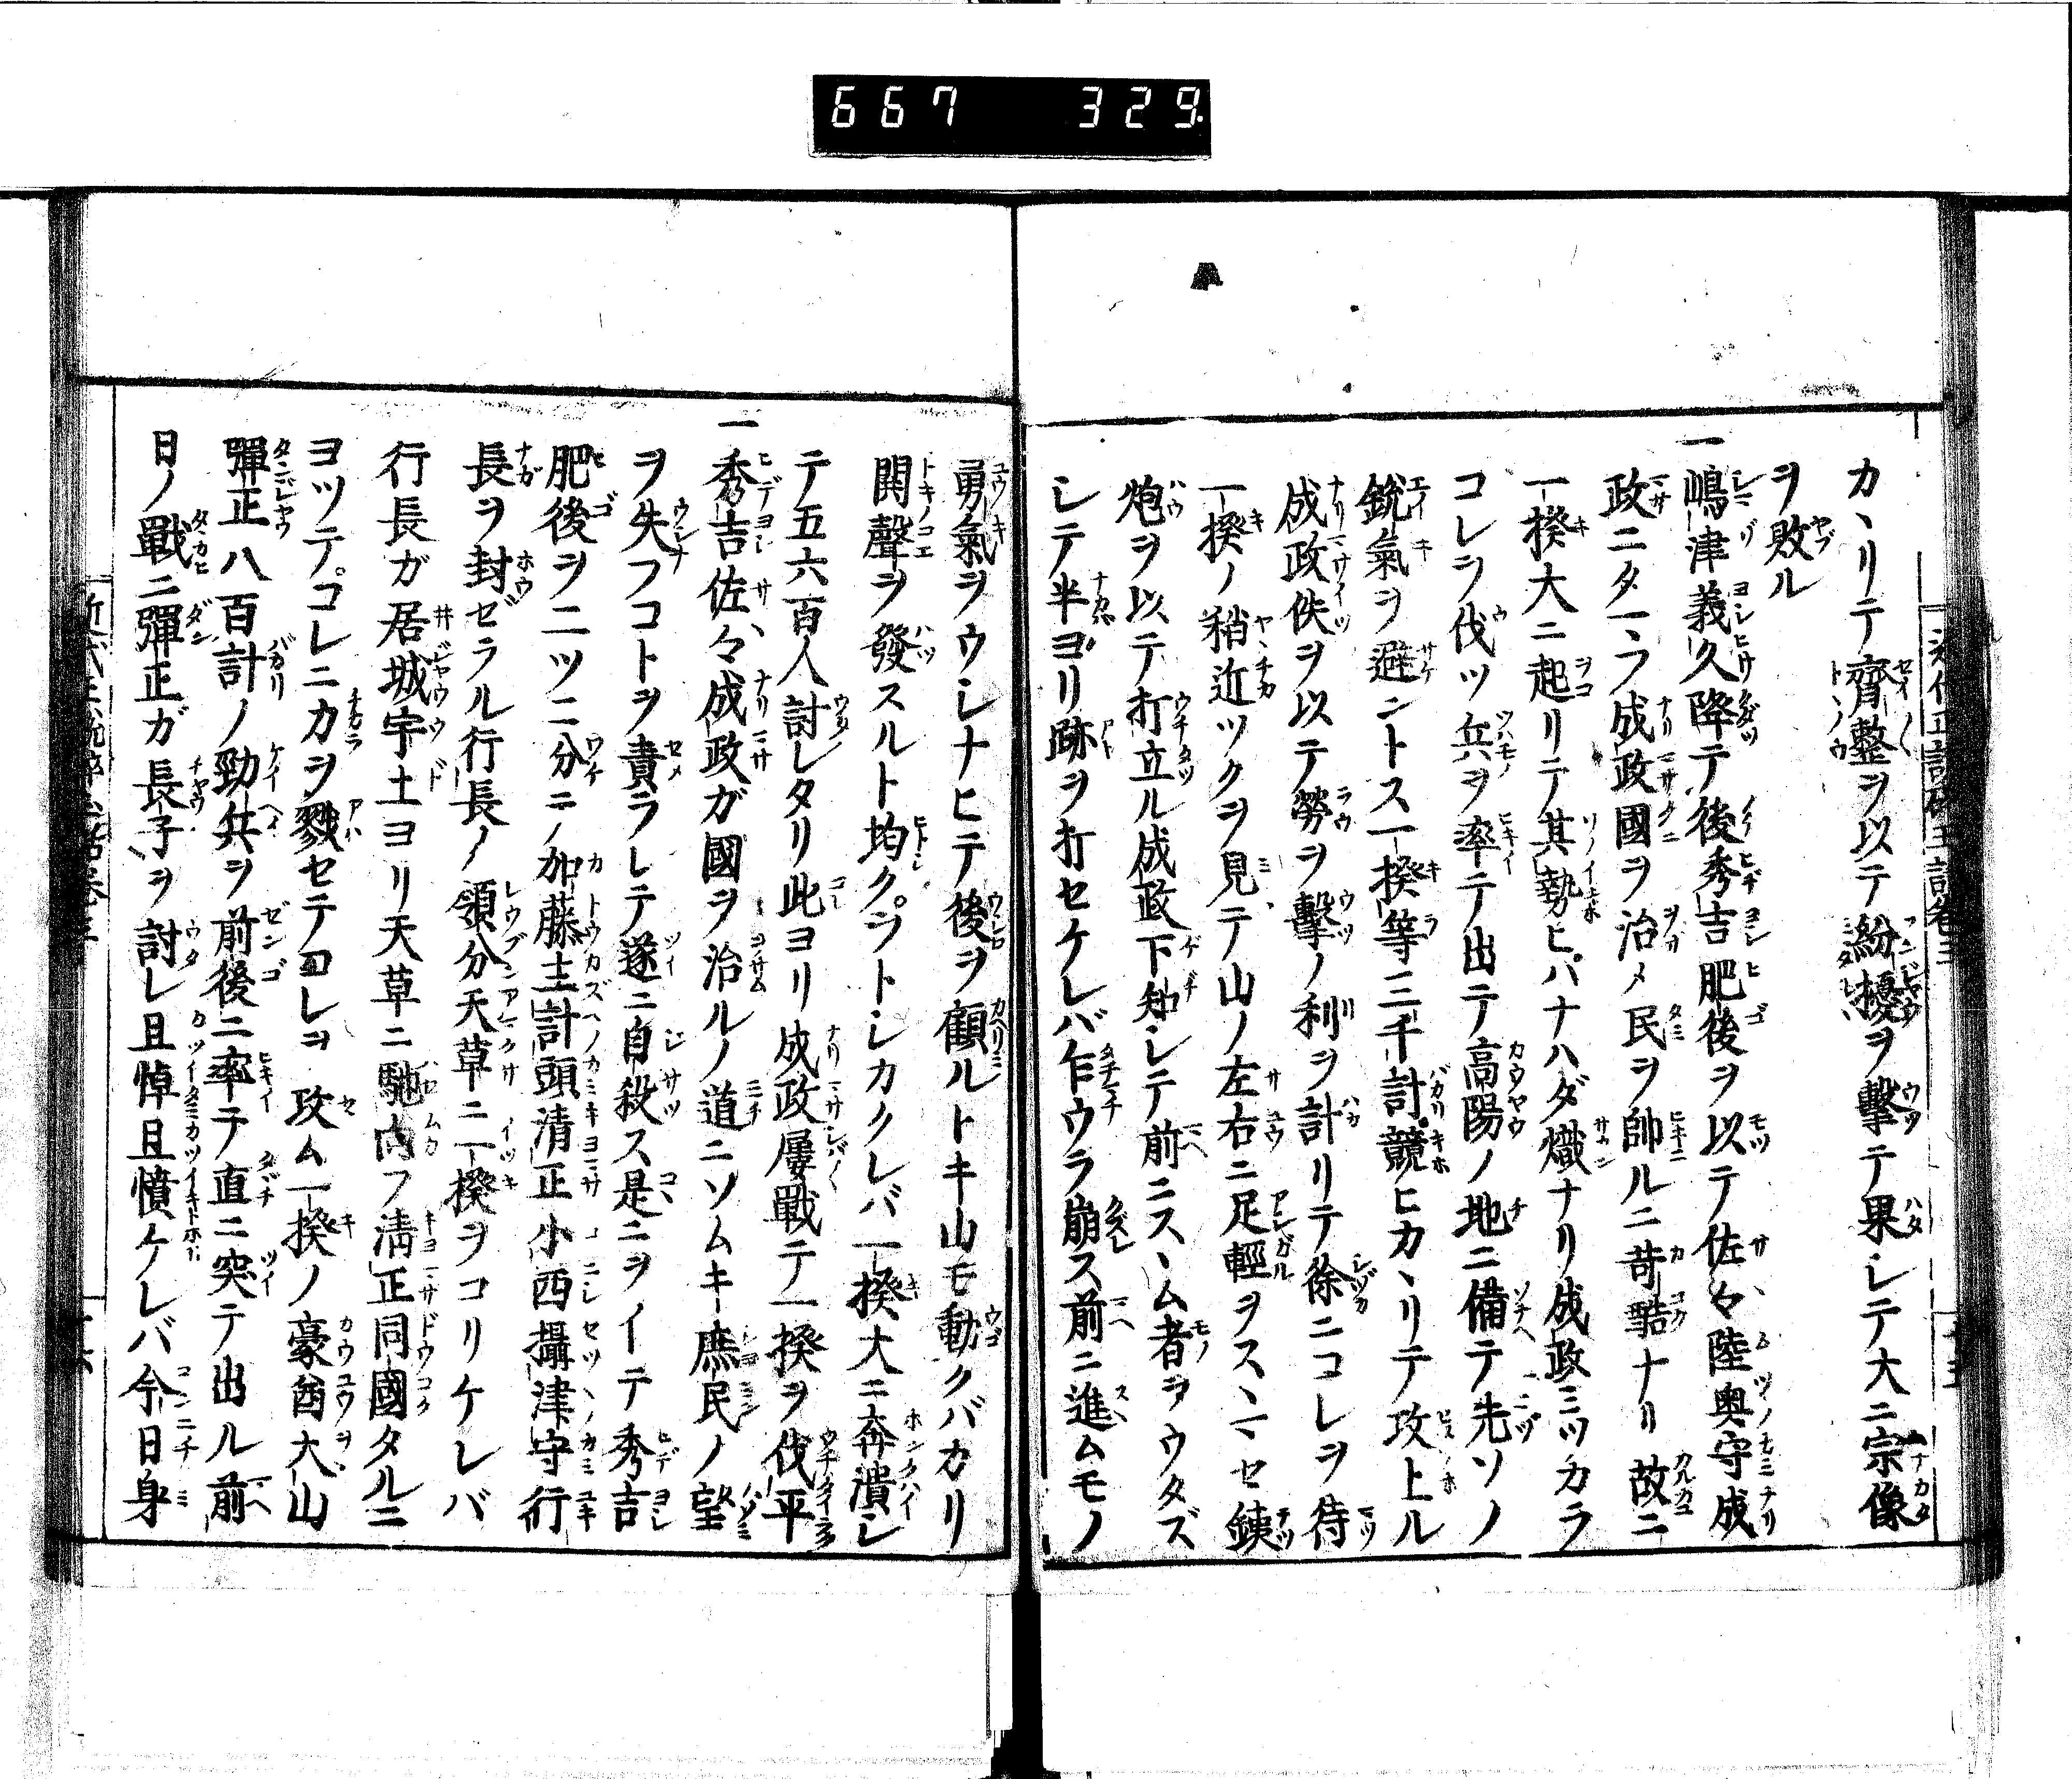 667 329.
カヽリテ齊整ヲ以テ紛擾ヲ擊テ果シテ大ニ宗像
ヲ敗ル
一嶋津義久降テ後秀吉肥後ヲ以テ佐々陸奥守成
政ニタマフ成政國ヲ治メ民ヲ帥ルニ苛酷ナリ故ニ
一揆大ニ起リテ其勢ヒハナハダ熾ナリ成政ミツカラ
コレヲ伐ツ兵ヲ率テ出テ高陽ノ地ニ備テ先ソノ
銳氣ヲ避ントス一揆等三千計競ヒカヽリテ攻上ル
成政佚ヲ以テ勞ヲ擊ノ利ヲ計リテ徐ニコレヲ待
一揆ノ稍近ツクヲ見テ山ノ左右ニ足輕ヲスヽマセ銕
炮ヲ以テ打立ル成政下知シテ前ニスヽム者ヲウタズ
シテ半ヨリ跡ヲ打セケレバ乍ウラ崩ス前ニ進ムモノ
勇氣ヲウシナヒテ後ヲ顧ルトキ山モ動クバカリ
鬨聲ヲ發スルト均クヲトシカクレバ一揆大ニ奔潰シ
テ五六百人討レタリ此ヨリ成政屢戰テ一揆ヲ伐平
一秀吉佐々成政ガ國ヲ治ルノ道ニソムキ庶民ノ望
ヲ失フコトヲ責ラレテ遂ニ自殺ス是ニヲイテ秀吉
肥後ヲ二ツニ分ニノ加藤主計頭清正小西攝津守行
長ヲ封ゼラル行長ノ領分天草ニ一揆ヲコリケレバ
行長ガ居城宇土ヨリ天草ニ馳向フ清正同國タルニ
ヨツテコレニカヲ戮セテコレヲ攻ム一揆ノ豪酋大山
彈正八百計ノ勁兵ヲ前後ニ率テ直ニ突テ出ル前
日ノ戰ニ彈正ガ長子ヲ討レ且悼且憤ケレバ今日身